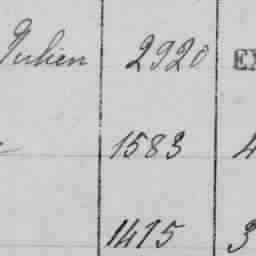 Julien 2920 EX
1583 4
1415 3